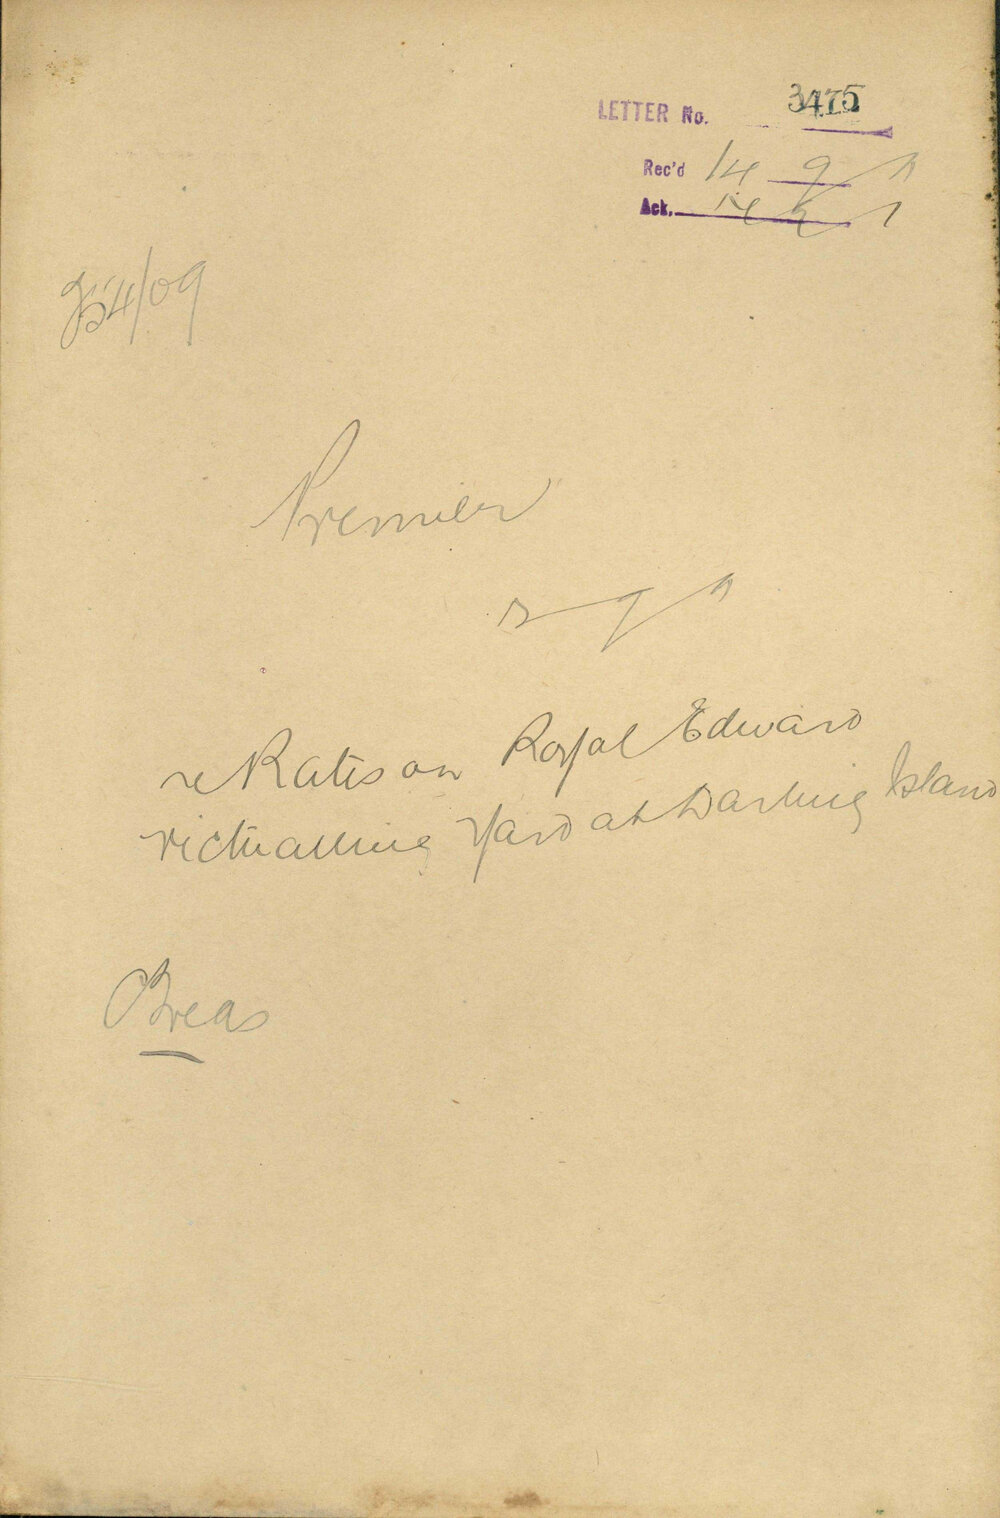 LETTER No. 3475
Rec'd 14 9
Ack.
Premier
re Rates on Royal Edward
Victualling Yard at Darling Island
Treas